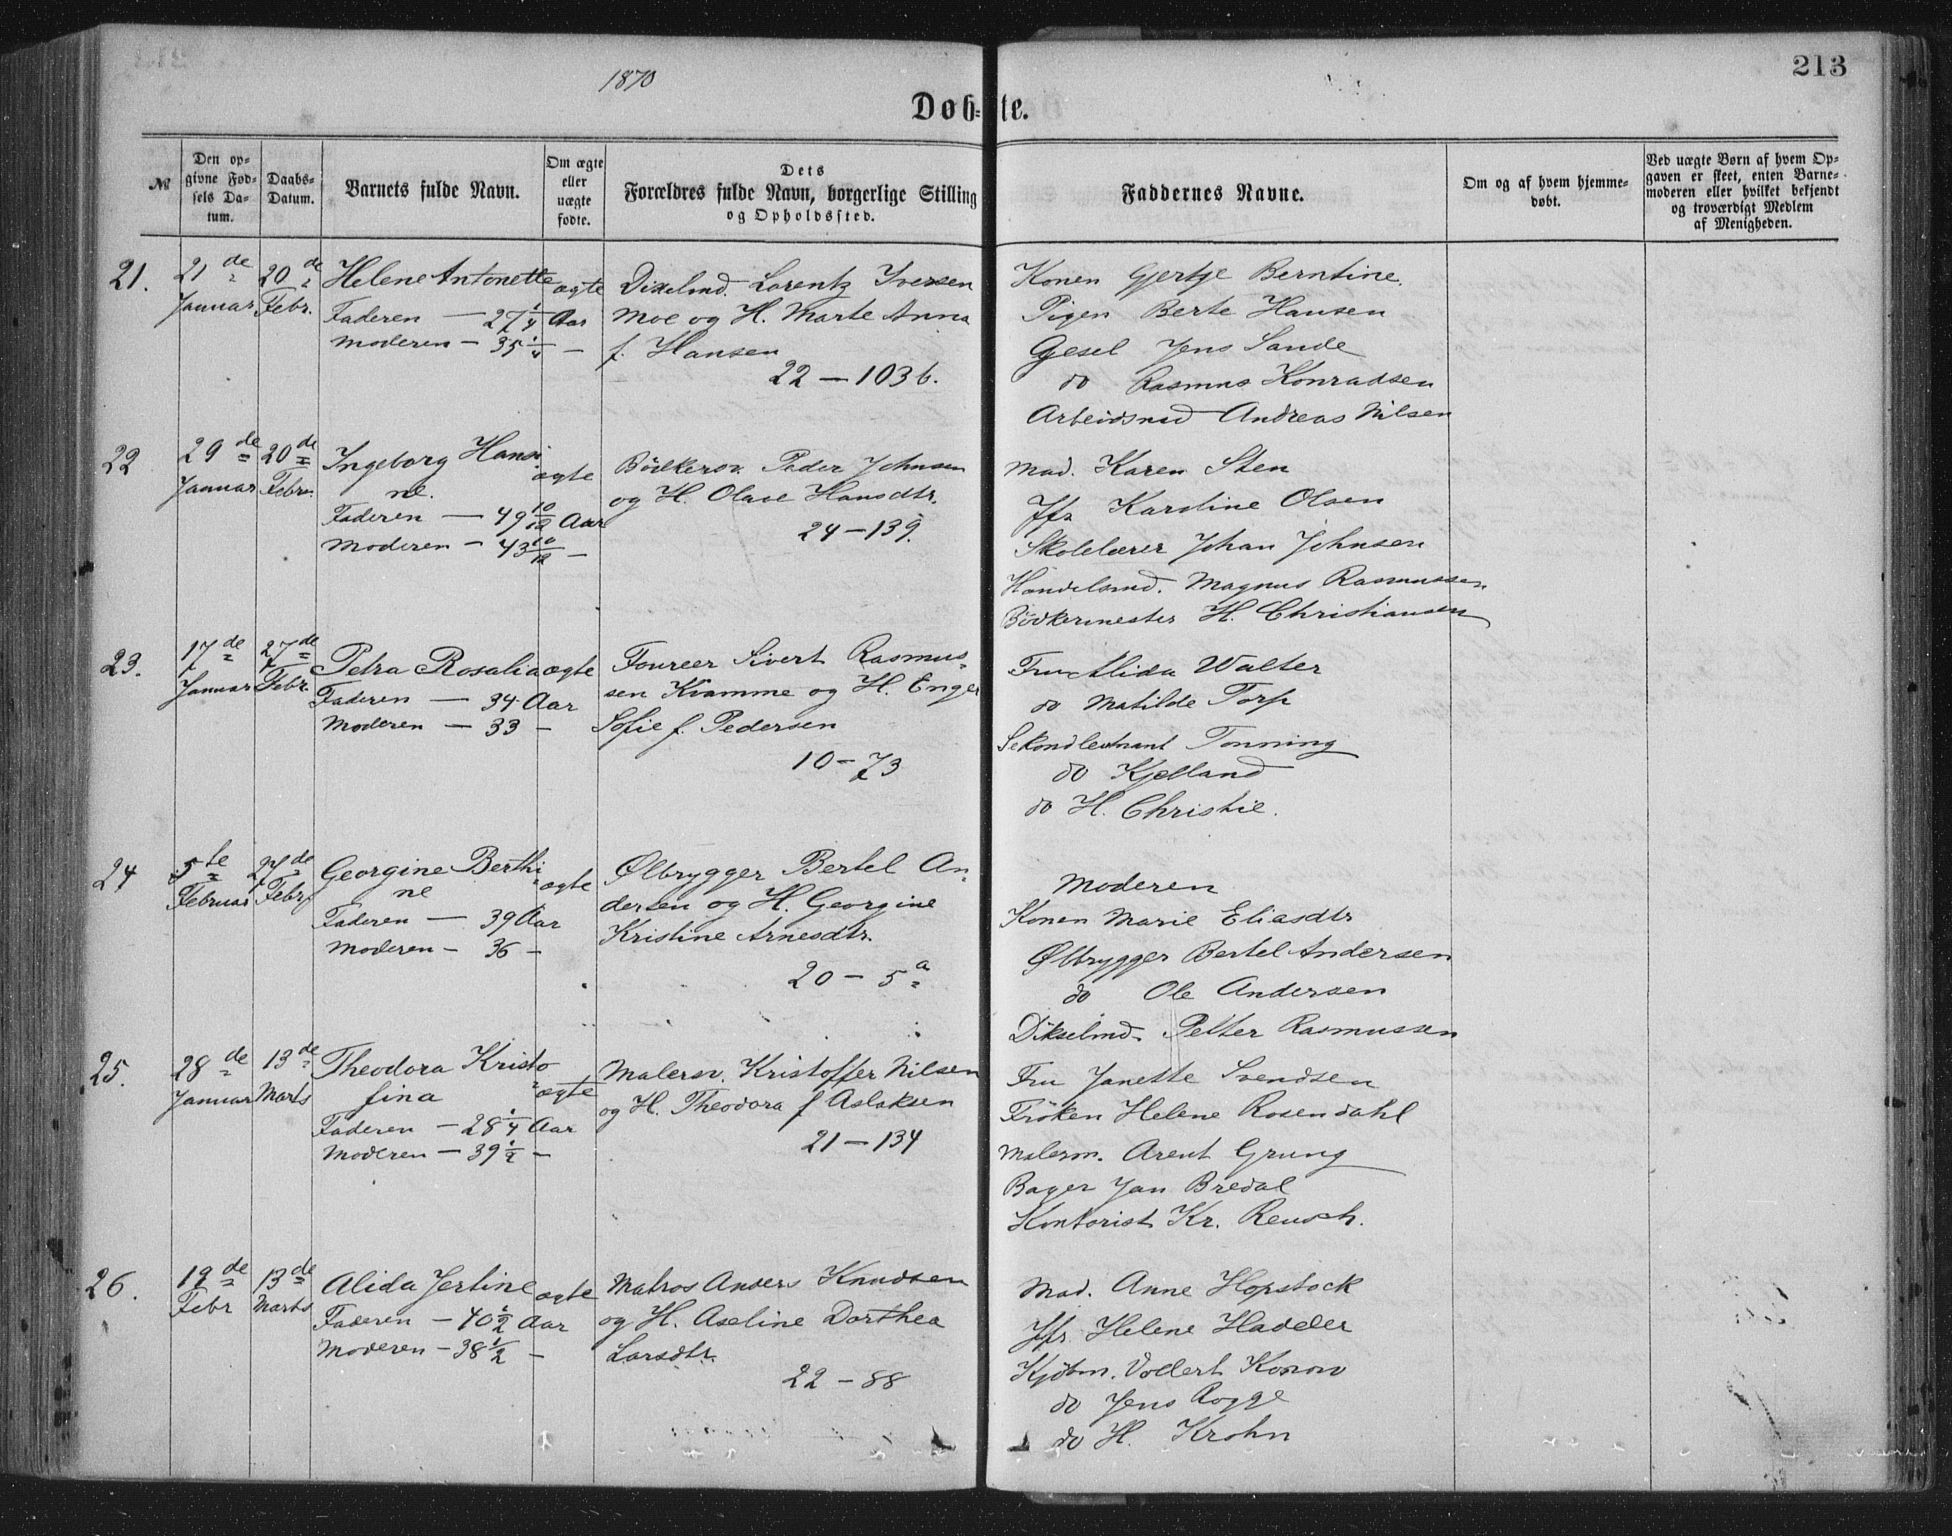 1870
213
Døb- te.
№
Den op-
givne Fød-
sels Da-
tum.
Daabs-
Datum.
Barnets fulde Navn.
Om ægte
eller
uægte
fødte.
Dets
Forældres fulde Navn, borgerlige Stilling
og Opholdssted.
Faddernes Navne.
Om og af hvem hjemme-
døbt.
Ved uægte Børn af hvem Op-
gaven er skeet, enten Barne-
moderen eller hvilket bekjendt
og troværdigt Medlem
af Menigheden.
21.
21de
Januar
20de
Febr.
Helene Antonette
Faderen — 27 1/4 Aar
Moderen — 35 1/4 —
ægte
Dixelmd. Lorentz Iversen
Moe og H. Marte Anna
f. Hansen
22 — 103 b.
Konen Gjertje Berntine.
Pigen Berte Hansen
Gesel Jens Sande
do Rasmus Konradsen
Arbeidsmd Andreas Nilsen
22
29de
Januar
20de
Febr.
Ingeborg Hansi-
ne.
Faderen — 49 10/12 Aar
Moderen — 43 10/12 —
ægte
Bödkersv. Peder Johnsen
og H. Olave Hansdtr.
24 — 139.
Mad. Karen Sten
Jfr Karoline Olsen
Skolelærer Johan Johnsen
Handelsmd. Magnus Rasmussen
Bödkermester H. Christiansen
23.
17de
Januar
27de
Febr.
Petra Rosalia
Faderen — 34 Aar
Moderen — 33 —
ægte
Foureer Sivert Rasmus-
sen Kramme og H. Enger
Sofie f. Pedersen
10 — 73
Fru Alida Walter
do Matilde Torp
Sekondleutnant Tonning
do Kjelland
do H. Christie.
24
5te
Februar
27de
Febr
Georgine Berthi-
ne
Faderen — 39 Aar
Moderen — 36 —
ægte
Ølbrygger Bertel An-
dersen og H. Georgine
Kristine Arnesdtr.
20 — 5a
Moderen
Konen Marie Eliasdtr
Ølbrygger Bertel Andersen
do Ole Andersen
Dikselmd. Petter Rasmussen
25.
28de
Januar
13de
Marts
Theodora Kristo-
fina
Faderen — 28 1/4 Aar
Moderen — 39 1/2 —
ægte
Malersv. Kristoffer Nilsen
og H. Theodora f Aslaksen
21 — 134
Fru Janette Svendsen
Fröken Helene Rosendahl
Malerm. Arent Grung
Bager Jan Bredal
Kontorist Kr. Reusch.
26.
19de
Febr
13de
Marts
Alida Jertine
Faderen — 40 1/2 Aar
Moderen — 38 1/2 —
ægte
Matros Anders Knudsen
og H. Aseline Dorthea
Larsdtr.
22 — 88
Mad. Anne Hopstock
Jfr Helene Hadeler
Kjöbm. Vollert Konow
do Jens Rogge
do H. Krohn